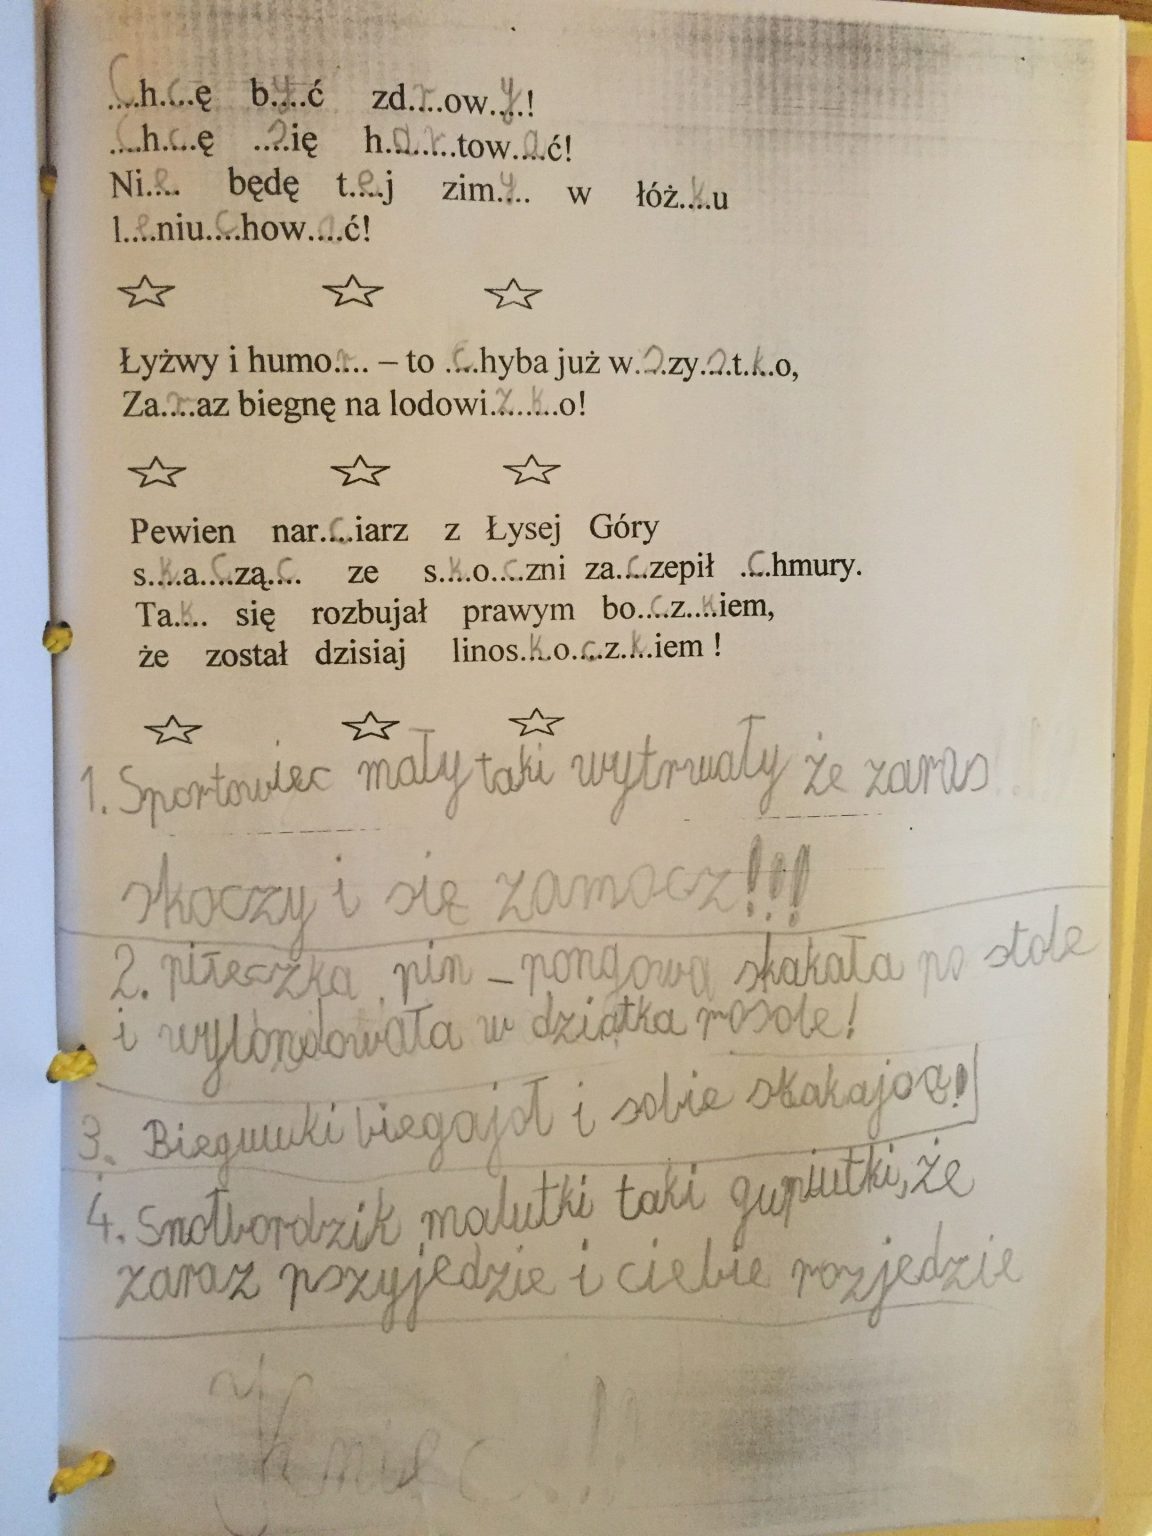 Chcę być zdrowy!
Chcę się hartować!
Nie będę tej zimy w łóżku
leniuchować!
Łyżwy i humor – to chyba już wszystko,
Zaraz biegnę na lodowisko!
Pewien narciarz z Łysej Góry
skacząc ze skoczni zaczepił chmury.
Tak się rozbujał prawym boczkiem,
że został dzisiaj linoskoczkiem !
1. Sportowiec mały taki wytrwały że zaras
skoczy i się zamocz!!!
2. piłeczka pin – pongowa skakała po stole
i wylondowała w dziątka rosole!
3. Biegwuki biegajoł i sobie skakając!
4. Snołbordzik malutki taki gupiutki, że
zaraz pszyjedzie i ciebie rozjedzie
Koniec!!